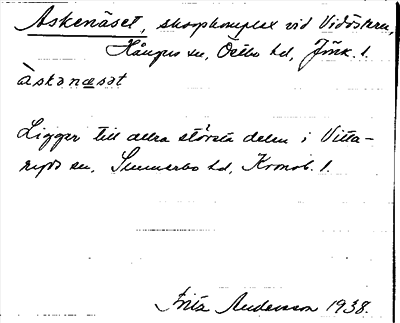 Askenäset, skogskomplex vid Vidöstern,
Hånger sn, Östbo hd, Jönk. l.
àskanæsət
Ligger till allra största delen i Vitta-
ryds sn, Sunnerbo hd, Kronob. l.
Fritz Andersson 1938.